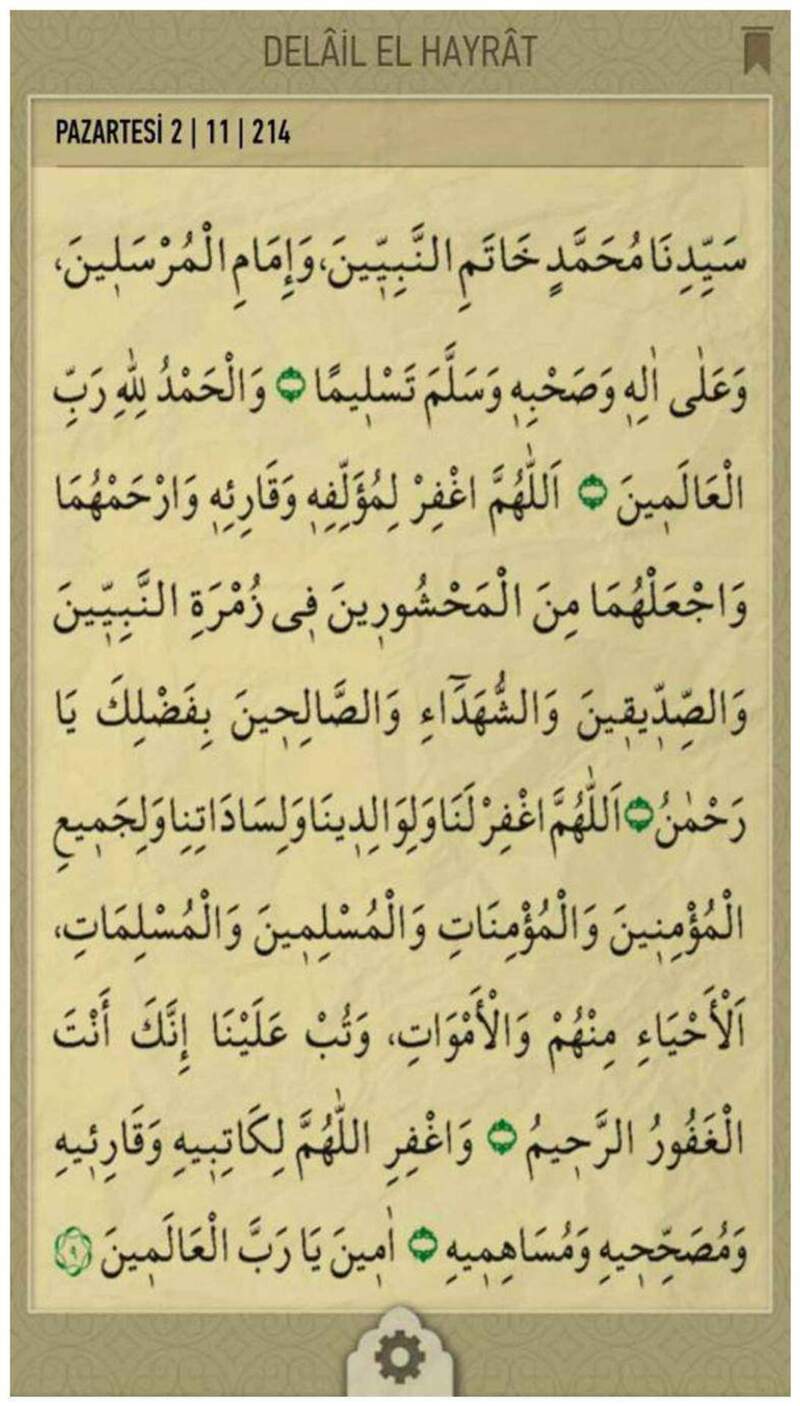 DELÂİL EL HAYRÂT
PAZARTESİ 2 | 11 | 214
سَيِّدِنَا مُحَمَّدٍ خَاتَمِ النَّبِيّ۪ينَ، وَإِمَامِ الْمُرْسَل۪ينَ،
وَعَلٰى اٰلِه۪ وَصَحْبِه۪ وَسَلَّمَ تَسْل۪يمًا ۝ وَالْحَمْدُ لِلّٰهِ رَبِّ
الْعَالَم۪ينَ ۝ اَللّٰهُمَّ اغْفِرْ لِمُؤَلِّفِه۪ وَقَارِئِه۪ وَارْحَمْهُمَا
وَاجْعَلْهُمَا مِنَ الْمَحْشُور۪ينَ ف۪ى زُمْرَةِ النَّبِيّ۪ينَ
وَالصِّدّ۪يق۪ينَ وَالشُّهَدَٓاءِ وَالصَّالِح۪ينَ بِفَضْلِكَ يَا
رَحْمٰنُ ۝ اَللّٰهُمَّ اغْفِرْ لَنَا وَلِوَالِد۪ينَا وَلِسَادَاتِنِا وَلِجَم۪يعِ
الْمُؤْمِن۪ينَ وَالْمُؤْمِنَاتِ وَالْمُسْلِم۪ينَ وَالْمُسْلِمَاتِ،
اَلْأَحْيَاءِ مِنْهُمْ وَالْأَمْوَاتِ، وَتُبْ عَلَيْنَا إِنَّكَ أَنْتَ
الْغَفُورُ الرَّح۪يمُ ۝ وَاغْفِرِ اللّٰهُمَّ لِكَاتِب۪يهِ وَقَارِئ۪يهِ
وَمُصَحِّح۪يهِ وَمُسَاهِم۪يهِ ۝ اٰم۪ينَ يَا رَبَّ الْعَالَم۪ينَ ۹